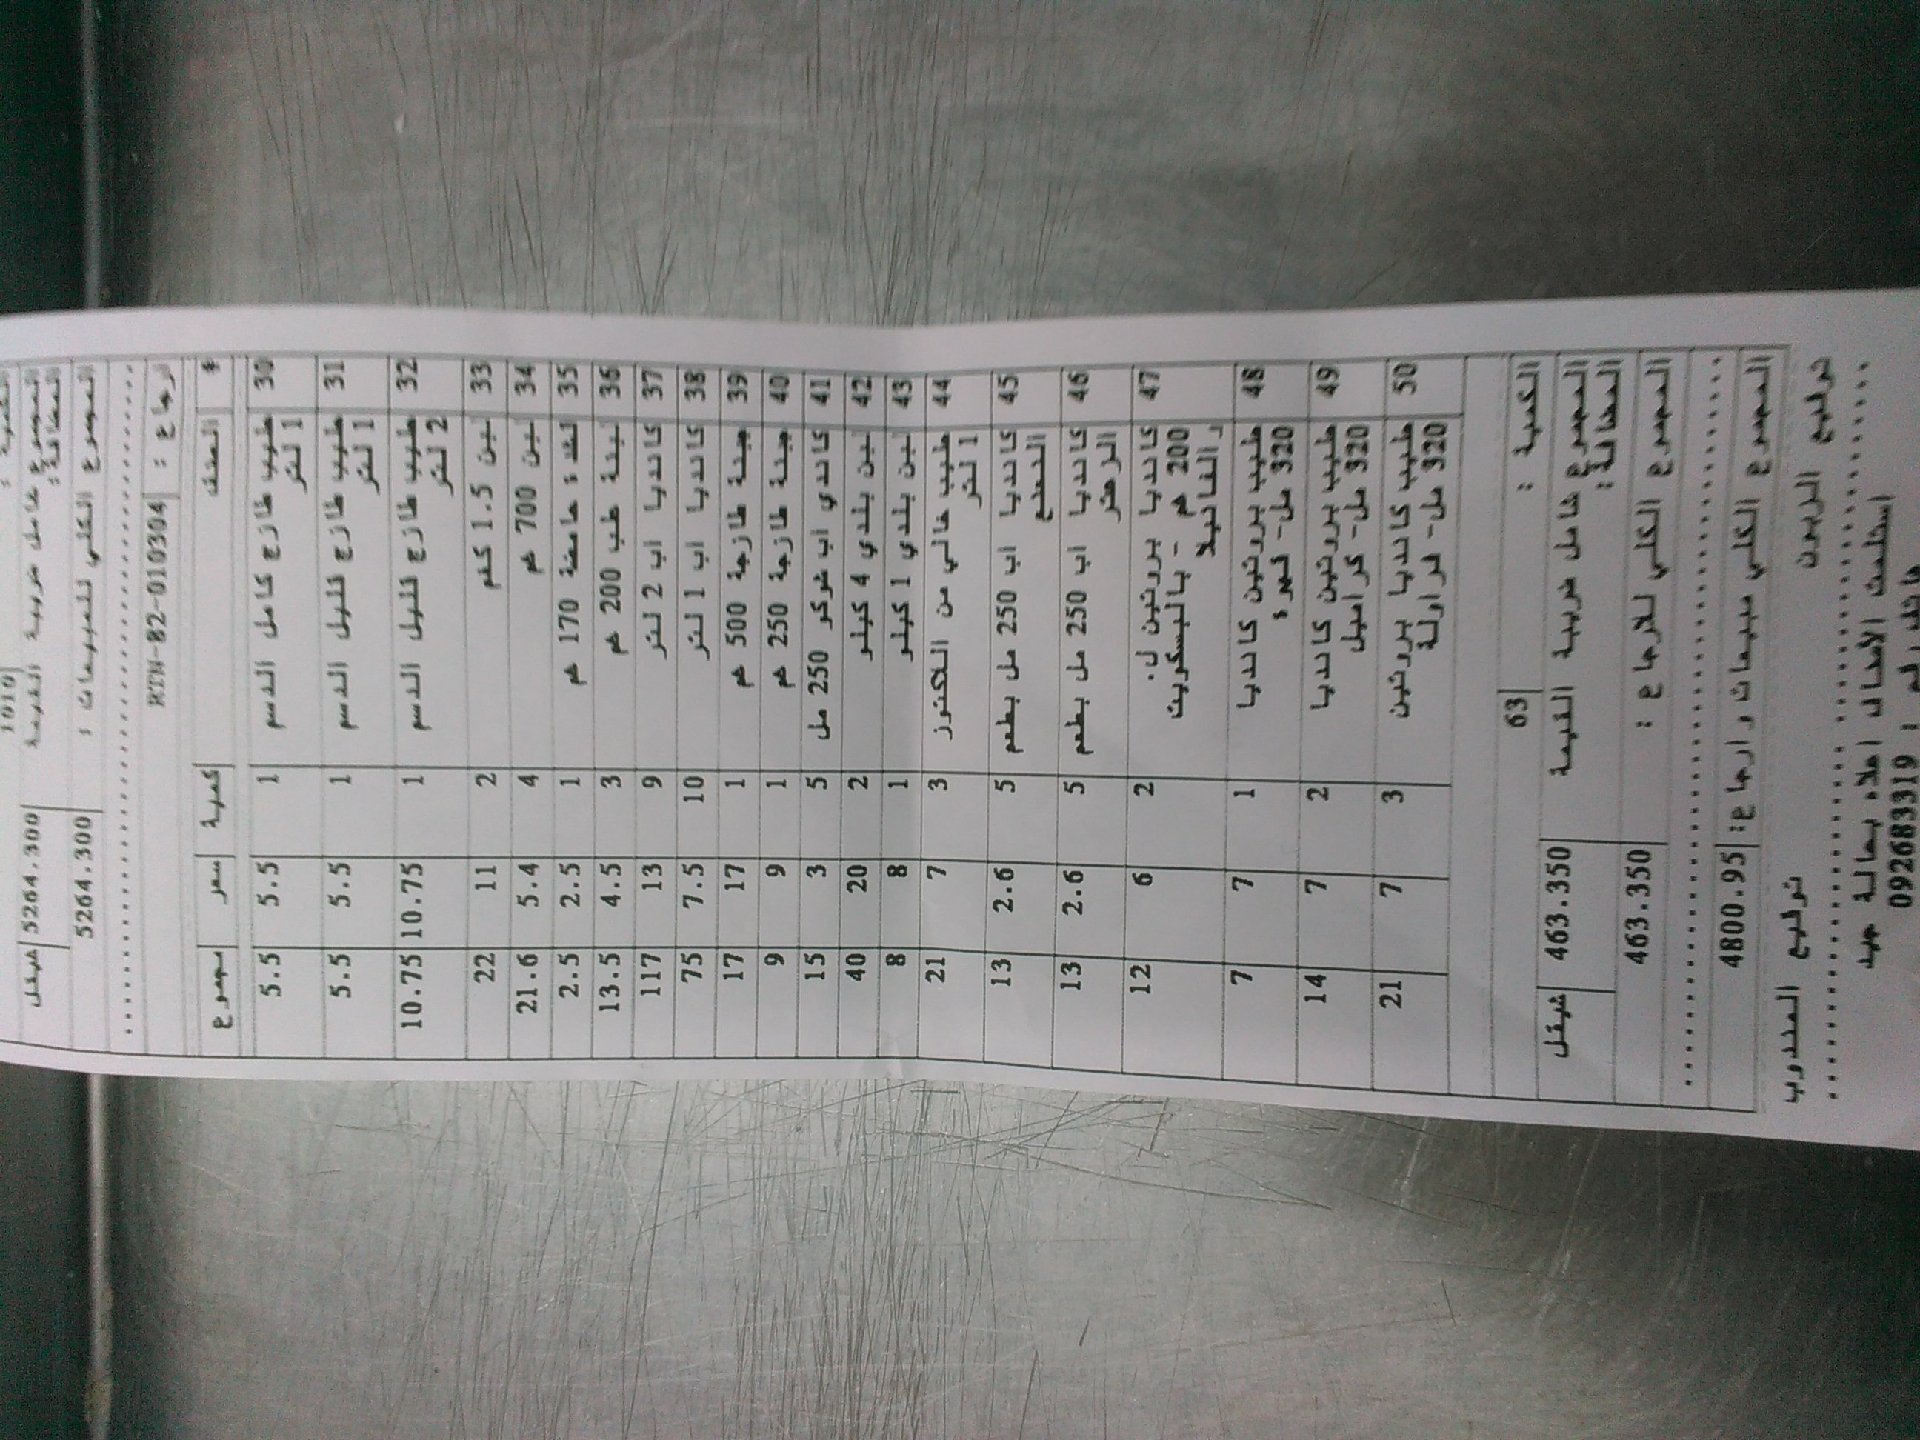 1010
المجموع شامل ضريبة القيمة 5264.300 شيقل
المضافة:
المجموع الكلي للمبيعات : 5264.300
ارجاع : RTN-82-010304
# الصنف كمية سعر مجموع
30 حليب طازج كامل الدسم 1 5.5 5.5
1 لتر
31 حليب طازج قليل الدسم 1 5.5 5.5
1 لتر
32 حليب طازج قليل الدسم 1 10.75 10.75
2 لتر
33 لبن 1.5 كغم 2 11 22
34 لبن 700 غم 4 5.4 21.6
35 قشدة حامضة 170 غم 1 2.5 2.5
36 لبنة علب 200 غم 3 4.5 13.5
37 كانديا اب 2 لتر 9 13 117
38 كانديا اب 1 لتر 10 7.5 75
39 جبنة طازجة 500 غم 1 17 17
40 جبنة طازجة 250 غم 1 9 9
41 كاندي اب شوكو 250 مل 5 3 15
42 لبن بلدي 4 كيلو 2 20 40
43 لبن بلدي 1 كيلو 1 8 8
44 حليب خالي من اللاكتوز 3 7 21
1 لتر
45 كانديا اب 250 مل بطعم 5 2.6 13
النعنع
46 كانديا اب 250 مل بطعم 5 2.6 13
الزعتر
47 كانديا بروتين ل. 2 6 12
200 غم - بالبسكويت
والفانيلا
48 حليب بروتين كانديا 1 7 7
320 مل- قهوة
49 حليب بروتين كانديا 2 7 14
320 مل- كراميل
50 حليب كانديا بروتين 3 7 21
320 مل- فراولة
الكمية : 63
المجموع شامل ضريبة القيمة 463.350 شيقل
المضافة :
المجموع الكلي للارجاع : 463.350
المجموع الكلي مبيعات وارجاع: 4800.95
توقيع الزبون توقيع المندوب
استلمت الأصناف اعلاه بحالة جيد
هاتف رقم : 092683319